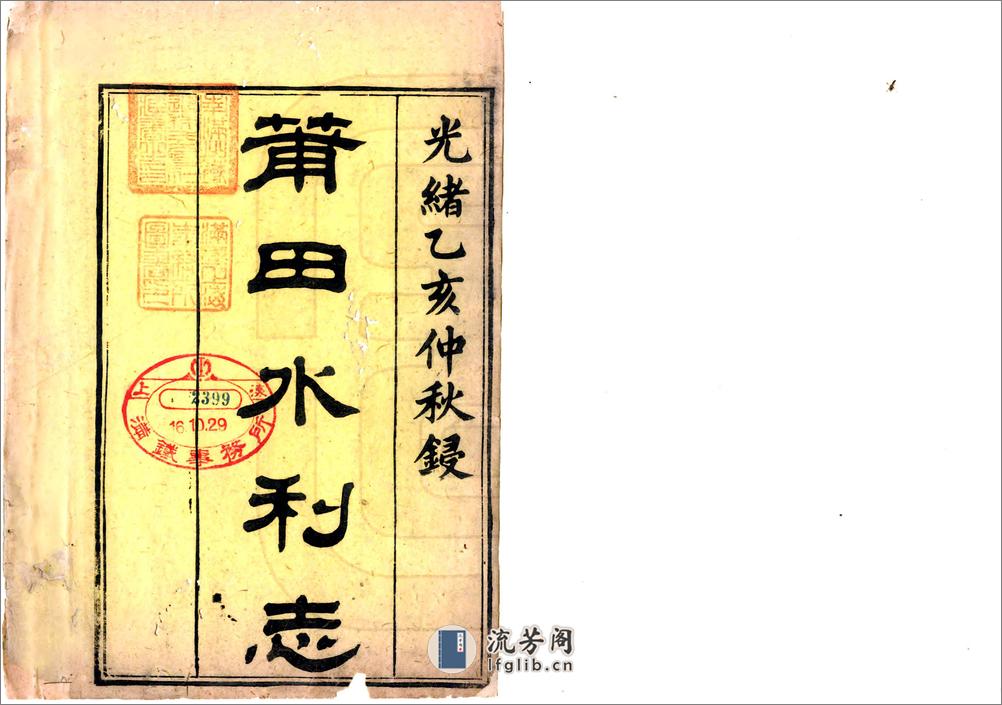 光緒乙亥仲秋鋟
莆田水利志
上海
2399
16.10.29
滿鐵事務所
流芳阁
lfglib.cn